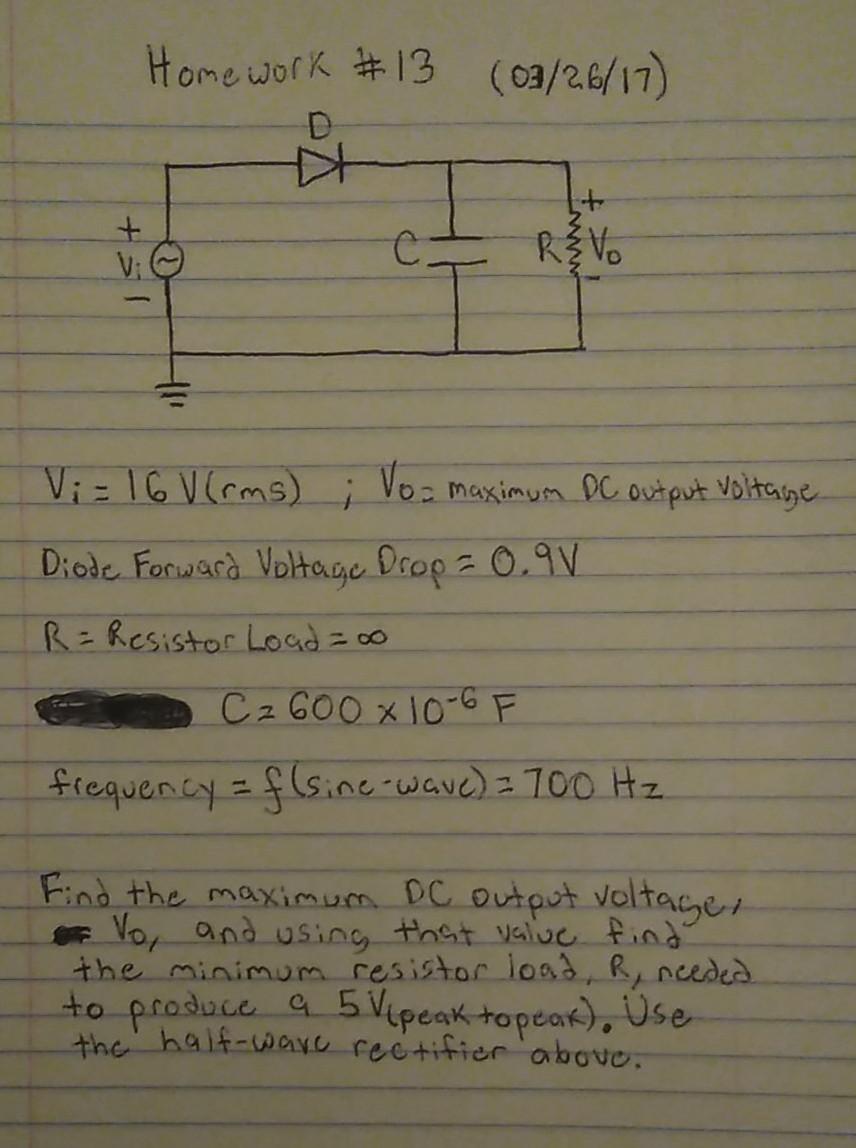 Homework #13 (03/26/17)
D
+
Vi
-
C
R
+
Vo
-
Vi = 16 V(rms) ; Vo = maximum DC output voltage
Diode Forward Voltage Drop = 0.9V
R = Resistor Load = ∞
C = 600 x 10-6 F
frequency = f(sine-wave) = 700 Hz
Find the maximum DC output voltage,
Vo, and using that value find
the minimum resistor load, R, needed
to produce a 5 V(peak to peak). Use
the half-wave rectifier above.